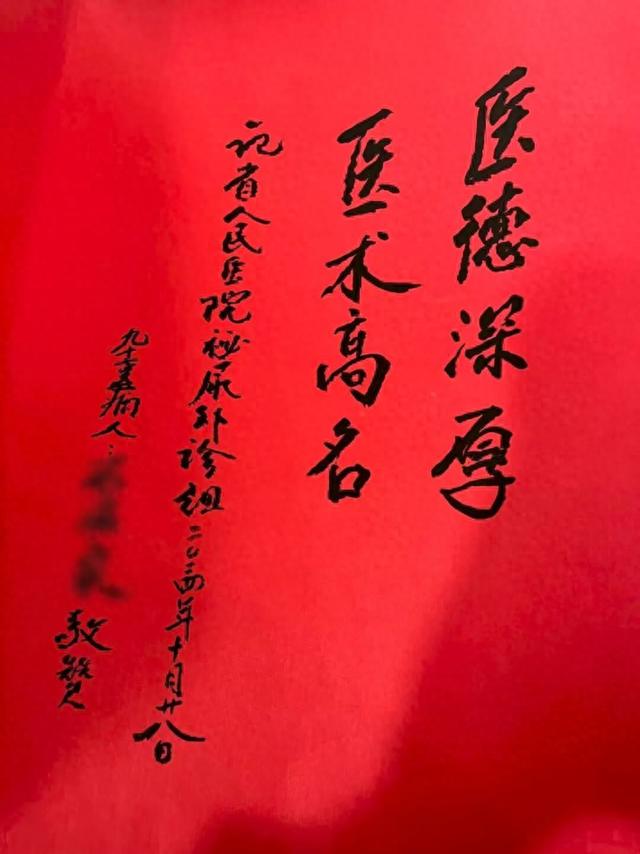 医德深厚
医术高名
记省人民医院祕尿外诊组二〇二四年十月廿八日
九十五病人：
敬贺